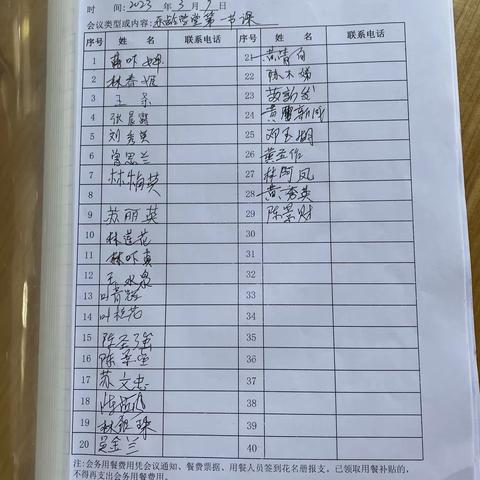 时 间:2023 年 3 月 7 日
会议类型或内容:乐龄学堂第一书课
序号 姓 名 联系电话 序号 姓 名 联系电话
1 21 黄清白
2 林春妮 22 陈木娣
3 王 23
4 张晨露 24 黄
5 刘秀英 25 邓玉明
6 曾思兰 26 黄圣作
7 林梅英 27 林阿凤
8 28 黄秀英
9 苏丽英 29 陈景财
10 林莲花 30
11 林吓真 31
12 王水泉 32
13 叶青 33
14 叶桂花 34
15 陈圣强 35
16 陈 36
17 苏文忠 37
18 38
19 林 39
20 吴金兰 40
注:会务用餐费用凭会议通知、餐费票据、用餐人员签到花名册报支。已领取用餐补贴的,
不得再支出会务用餐费用。